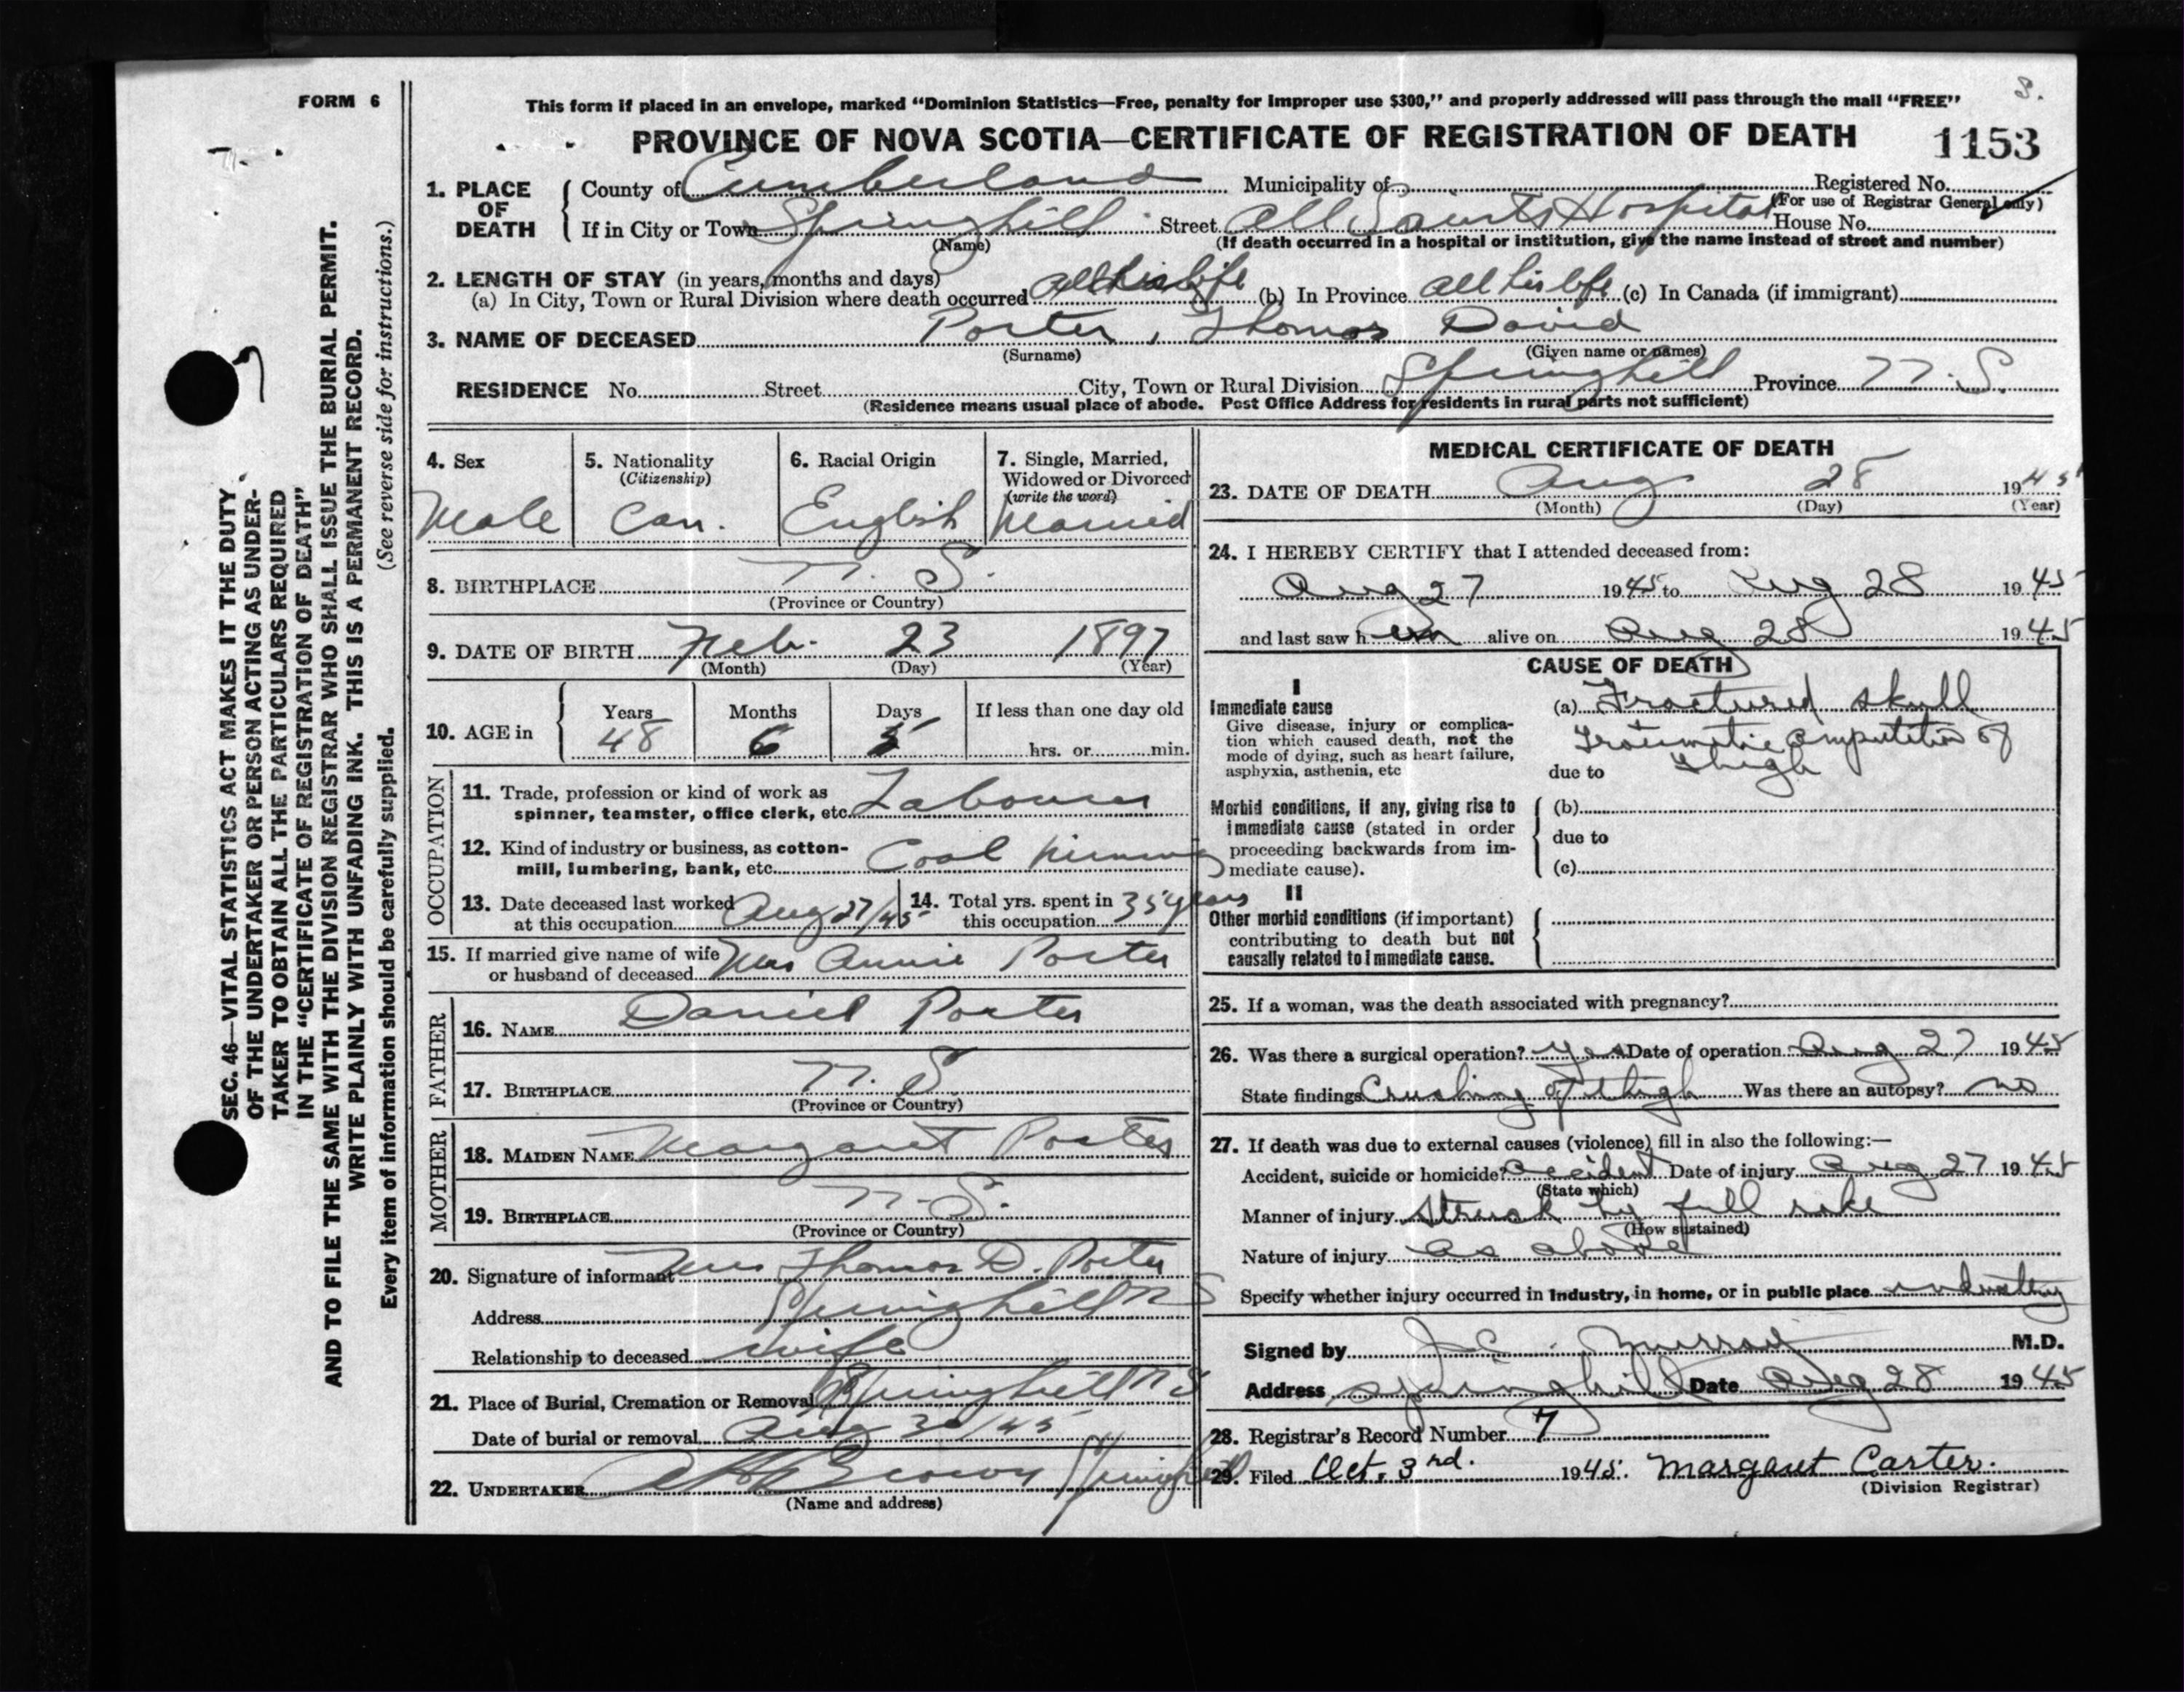 FORM 6
8.
This form if placed in an envelope, marked "Dominion Statistics—Free, penalty for improper use $300," and properly addressed will pass through the mail "FREE"
PROVINCE OF NOVA SCOTIA—CERTIFICATE OF REGISTRATION OF DEATH 1153
1. PLACE OF DEATH County of Cumberland Municipality of Registered No.
(For use of Registrar General only)
If in City or Town Springhill Street All Saints Hospital House No.
(Name) (If death occurred in a hospital or institution, give the name instead of street and number)
2. LENGTH OF STAY (in years, months and days)
(a) In City, Town or Rural Division where death occurred all his life (b) In Province all his life (c) In Canada (if immigrant)
3. NAME OF DECEASED Porter, Thomas David
(Surname) (Given name or names)
RESIDENCE No. Street City, Town or Rural Division Springhill Province N.S.
(Residence means usual place of abode. Post Office Address for residents in rural parts not sufficient)
4. Sex Male
5. Nationality (Citizenship) Can.
6. Racial Origin English
7. Single, Married, Widowed or Divorced (write the word) Married
8. BIRTHPLACE N.S.
(Province or Country)
9. DATE OF BIRTH Feb. 23 1897
(Month) (Day) (Year)
10. AGE in Years 48 Months 6 Days 5 If less than one day old hrs. or min.
OCCUPATION
11. Trade, profession or kind of work as spinner, teamster, office clerk, etc. Labourer
12. Kind of industry or business, as cotton-mill, lumbering, bank, etc. Coal Mining
13. Date deceased last worked at this occupation Aug 27/45
14. Total yrs. spent in this occupation 35 years
15. If married give name of wife or husband of deceased Mrs Annie Porter
FATHER
16. NAME Daniel Porter
17. BIRTHPLACE N.S
(Province or Country)
MOTHER
18. MAIDEN NAME Margaret Porter
19. BIRTHPLACE N.S.
(Province or Country)
20. Signature of informant Mrs Thomas D. Porter
Address Springhill N S
Relationship to deceased wife
21. Place of Burial, Cremation or Removal Springhill N S
Date of burial or removal Aug 30/45
22. UNDERTAKER Brown Springhill
(Name and address)
MEDICAL CERTIFICATE OF DEATH
23. DATE OF DEATH Aug 28 1945
(Month) (Day) (Year)
24. I HEREBY CERTIFY that I attended deceased from:
Aug 27 1945 to Aug 28 1945
and last saw h im alive on Aug 28 1945
CAUSE OF DEATH
I
Immediate cause
Give disease, injury or complication which caused death, not the mode of dying, such as heart failure, asphyxia, asthenia, etc
(a) Fractured skull
Traumatic amputation of
due to thigh
Morbid conditions, if any, giving rise to immediate cause (stated in order proceeding backwards from immediate cause).
(b)
due to
(c)
II
Other morbid conditions (if important) contributing to death but not causally related to immediate cause.
25. If a woman, was the death associated with pregnancy?
26. Was there a surgical operation? yes Date of operation Aug 27 1945
State findings Crushing of thigh Was there an autopsy? no
27. If death was due to external causes (violence) fill in also the following:—
Accident, suicide or homicide? accident Date of injury Aug 27 1945
(State which)
Manner of injury Struck by full rake
(How sustained)
Nature of injury as above
Specify whether injury occurred in Industry, in home, or in public place industry
Signed by J C Murray M.D.
Address Springhill Date Aug 28 1945
28. Registrar's Record Number 7
29. Filed Oct. 3rd. 1945. Margaret Carter.
(Division Registrar)
SEC. 46—VITAL STATISTICS ACT MAKES IT THE DUTY
OF THE UNDERTAKER OR PERSON ACTING AS UNDER-
TAKER TO OBTAIN ALL THE PARTICULARS REQUIRED
IN THE "CERTIFICATE OF REGISTRATION OF DEATH"
AND TO FILE THE SAME WITH THE DIVISION REGISTRAR WHO SHALL ISSUE THE BURIAL PERMIT.
WRITE PLAINLY WITH UNFADING INK. THIS IS A PERMANENT RECORD.
Every item of information should be carefully supplied. (See reverse side for instructions.)